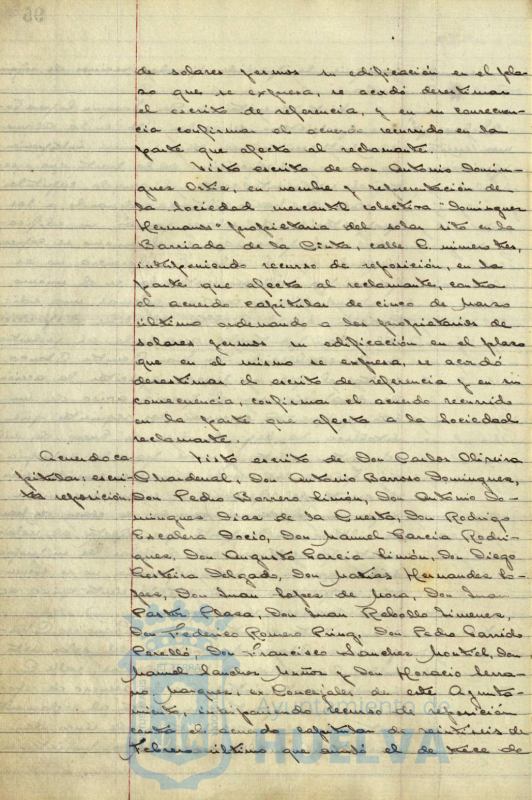 de solares yermos su edificación en el pla-
zo que se expresa, se acordó desestimar
el escrito de referencia, y en su consecuen-
cia confirmar el acuerdo recurrido en la
parte que afecta al reclamante.
Visto escrito de Don Antonio Domin-
guez Orta, en nombre y representación de
la Sociedad mercantil colectiva "Dominguez
Hermanos" propietaria del solar sito en la
Barriada de la Cinta, calle C. número tres,
interponiendo recurso de reposición, en la
parte que afecta al reclamante, contra
el acuerdo capitular de cinco de Marzo
último ordenando a los propietarios de
solares yermos su edificación en el plazo
que en el mismo se expresa, se acordó
desestimar el escrito de referencia y en su
consecuencia, confirmar el acuerdo recurrido
en la parte que afecta a la Sociedad
reclamante.
Acuerdo ca
pitular: escri-
tos reposición.
Visto escrito de Don Carlos Oliveira
Chardenal, Don Antonio Barroso Dominguez,
Don Pedro Borrero Limón, Don Antonio Do-
minguez Diaz de la Cuesta, Don Rodrigo
Escalera Docio, Don Manuel Garcia Rodri-
guez, Don Augusto Garcia Limón, Don Diego
Delgado, Don Matias Hernandez Lo-
pez, Don Juan Lopez de Mora, Don Juan
Pastor Plaza, Don Juan Rebollo Jimenez,
Don Federico Romero Don Pedro Garrido
Perelló, Don Francisco Sanchez Don
Manuel Sanchez Muñoz y Don Horacio Serra-
no Marquez, ex Concejales de este Ayunta-
miento, interponiendo recurso de reposición
contra el acuerdo capitular de veintiseis de
Febrero último que anuló el de trece de
Ayuntamiento de
HUELVA